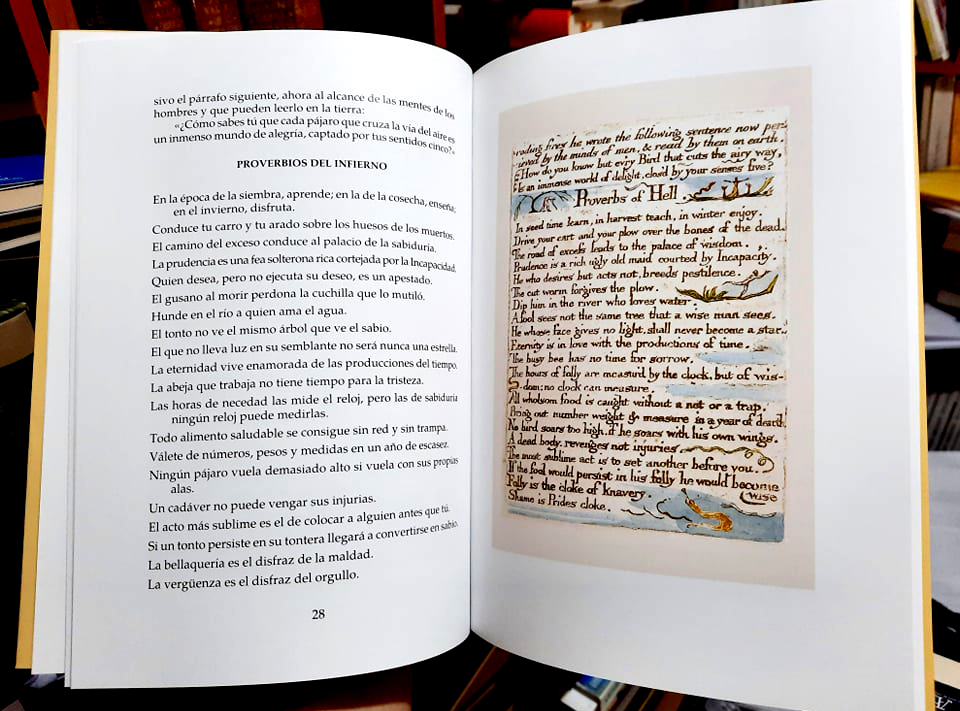 sivo el párrafo siguiente, ahora al alcance de las mentes de los
hombres y que pueden leerlo en la tierra:
«¿Cómo sabes tú que cada pájaro que cruza la vía del aire es
un inmenso mundo de alegría, captado por tus sentidos cinco?»
PROVERBIOS DEL INFIERNO
En la época de la siembra, aprende; en la de la cosecha, enseña;
en el invierno, disfruta.
Conduce tu carro y tu arado sobre los huesos de los muertos.
El camino del exceso conduce al palacio de la sabiduría.
La prudencia es una fea solterona rica cortejada por la Incapacidad.
Quien desea, pero no ejecuta su deseo, es un apestado.
El gusano al morir perdona la cuchilla que lo mutiló.
Hunde en el río a quien ama el agua.
El tonto no ve el mismo árbol que ve el sabio.
El que no lleva luz en su semblante no será nunca una estrella.
La eternidad vive enamorada de las producciones del tiempo.
La abeja que trabaja no tiene tiempo para la tristeza.
Las horas de necedad las mide el reloj, pero las de sabiduría
ningún reloj puede medirlas.
Todo alimento saludable se consigue sin red y sin trampa.
Válete de números, pesos y medidas en un año de escasez.
Ningún pájaro vuela demasiado alto si vuela con sus propias
alas.
Un cadáver no puede vengar sus injurias.
El acto más sublime es el de colocar a alguien antes que tú.
Si un tonto persiste en su tontera llegará a convertirse en sabio.
La bellaquería es el disfraz de la maldad.
La vergüenza es el disfraz del orgullo.
28
roding fires he wrote the following sentence now per-
cieved by the minds of men, & read by them on earth.
How do you know but ev'ry Bird that cuts the airy way,
Is an immense world of delight, clos'd by your senses five?
Proverbs of Hell
In seed time learn, in harvest teach, in winter enjoy.
Drive your cart and your plow over the bones of the dead.
The road of excess leads to the palace of wisdom.
Prudence is a rich ugly old maid courted by Incapacity.
He who desires but acts not, breeds pestilence.
The cut worm forgives the plow.
Dip him in the river who loves water.
A fool sees not the same tree that a wise man sees.
He whose face gives no light, shall never become a star.
Eternity is in love with the productions of time.
The busy bee has no time for sorrow.
The hours of folly are measur'd by the clock, but of wis-
-dom: no clock can measure.
All wholsom food is caught without a net or a trap.
Bring out number weight & measure in a year of dearth.
No bird soars too high, if he soars with his own wings.
A dead body, revenges not injuries.
The most sublime act is to set another before you.
If the fool would persist in his folly he would become
wise
Folly is the cloke of knavery.
Shame is Prides cloke.